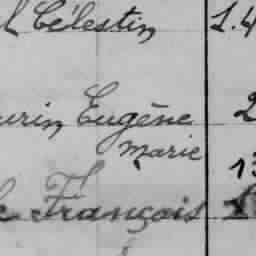 l Célestin 1.4
urin Eugène 2
Marie
e François 13